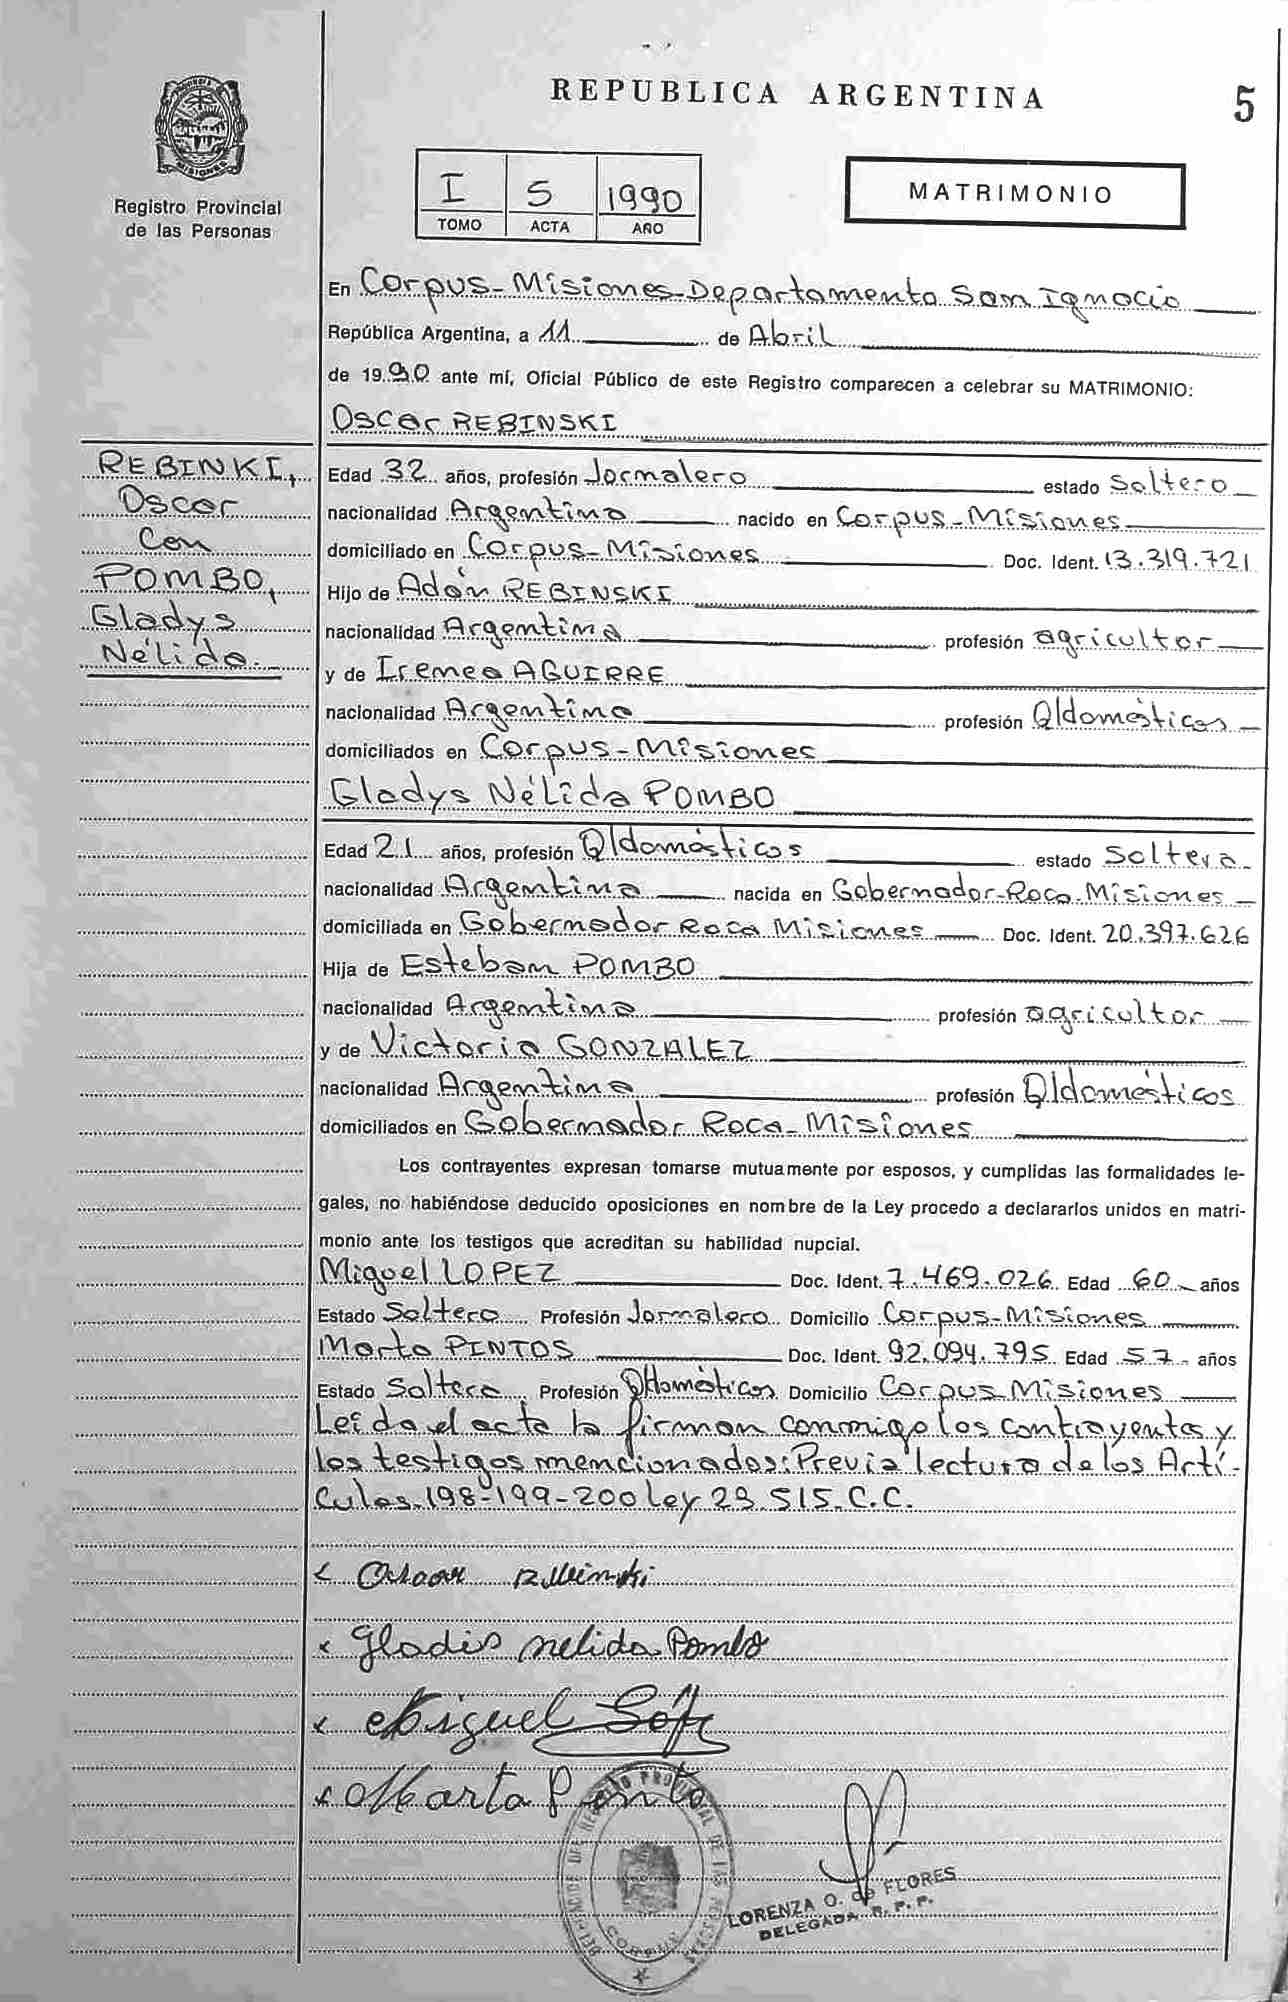 REPUBLICA ARGENTINA
5
Registro Provincial
de las Personas
I 5 1990
TOMO ACTA AÑO
MATRIMONIO
En Corpus-Misiones-Departamento San Ignacio
República Argentina, a 11 de Abril
de 1990 ante mí, Oficial Público de este Registro comparecen a celebrar su MATRIMONIO:
Oscar REBINSKI
REBINKI,
Oscar
Con
POMBO,
Gladys
Nélida.
Edad 32 años, profesión Jornalero estado Soltero
nacionalidad Argentina nacido en Corpus-Misiones
domiciliado en Corpus-Misiones Doc. Ident. 13.319.721
Hijo de Adán REBINSKI
nacionalidad Argentina profesión agricultor
y de Irenea AGUIRRE
nacionalidad Argentina profesión Qldomésticos
domiciliados en Corpus-Misiones
Gladys Nélida POMBO
Edad 21 años, profesión Qldomésticos estado Soltera
nacionalidad Argentina nacida en Gobernador-Roca-Misiones
domiciliada en Gobernador Roca Misiones Doc. Ident. 20.397.626
Hija de Esteban POMBO
nacionalidad Argentina profesión agricultor
y de Victoria GONZALEZ
nacionalidad Argentina profesión Qldomésticos
domiciliados en Gobernador Roca-Misiones
Los contrayentes expresan tomarse mutuamente por esposos, y cumplidas las formalidades le-
gales, no habiéndose deducido oposiciones en nombre de la Ley procedo a declararlos unidos en matri-
monio ante los testigos que acreditan su habilidad nupcial.
Miguel LOPEZ Doc. Ident. 7.469.026 Edad 60 años
Estado Soltero Profesión Jornalero Domicilio Corpus-Misiones
Marta PINTOS Doc. Ident. 92.094.795 Edad 57 años
Estado Soltera Profesión Qldomésticos Domicilio Corpus Misiones
Leída el acta la firman conmigo los contrayentes y
los testigos mencionados: Previa lectura de los Artí-
culos 198-199-200 Ley 23.515.C.C.
x Oscar Rebinski
x Gladis Nelida Pombo
x Miguel
x Marta Pinto
LORENZA O. de FLORES
DELEGADA R. P. P.
CORPUS